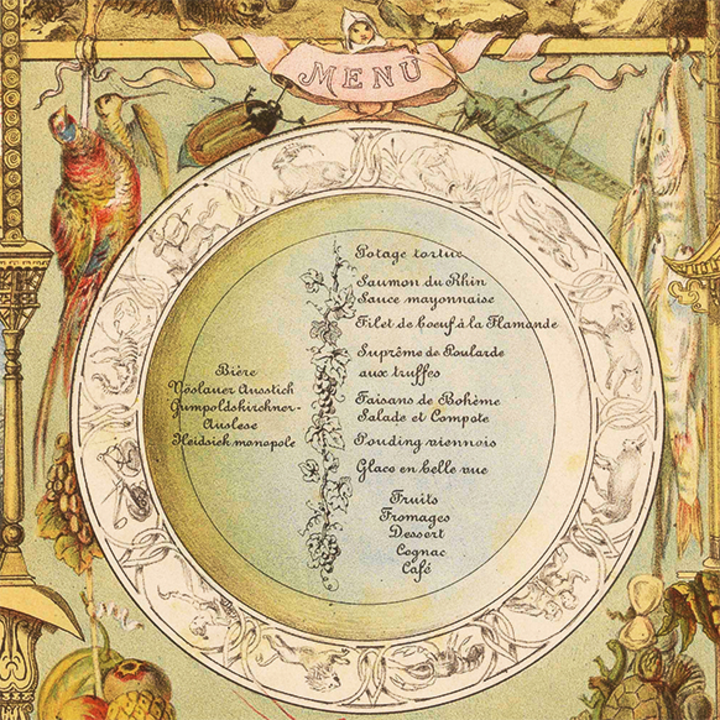 MENU
Bière
Vöslauer Ausstich
Gumpoldskirchner-
Auslese
Heidsick monopole
Potage tortue
Saumon du Rhin
Sauce mayonnaise
Filet de boeuf à la Flamande
Suprême de Poularde
aux truffes
Faisans de Bohème
Salade et Compote
Pouding viennois
Glace en belle vue
Fruits
Fromages
Dessert
Cognac
Café